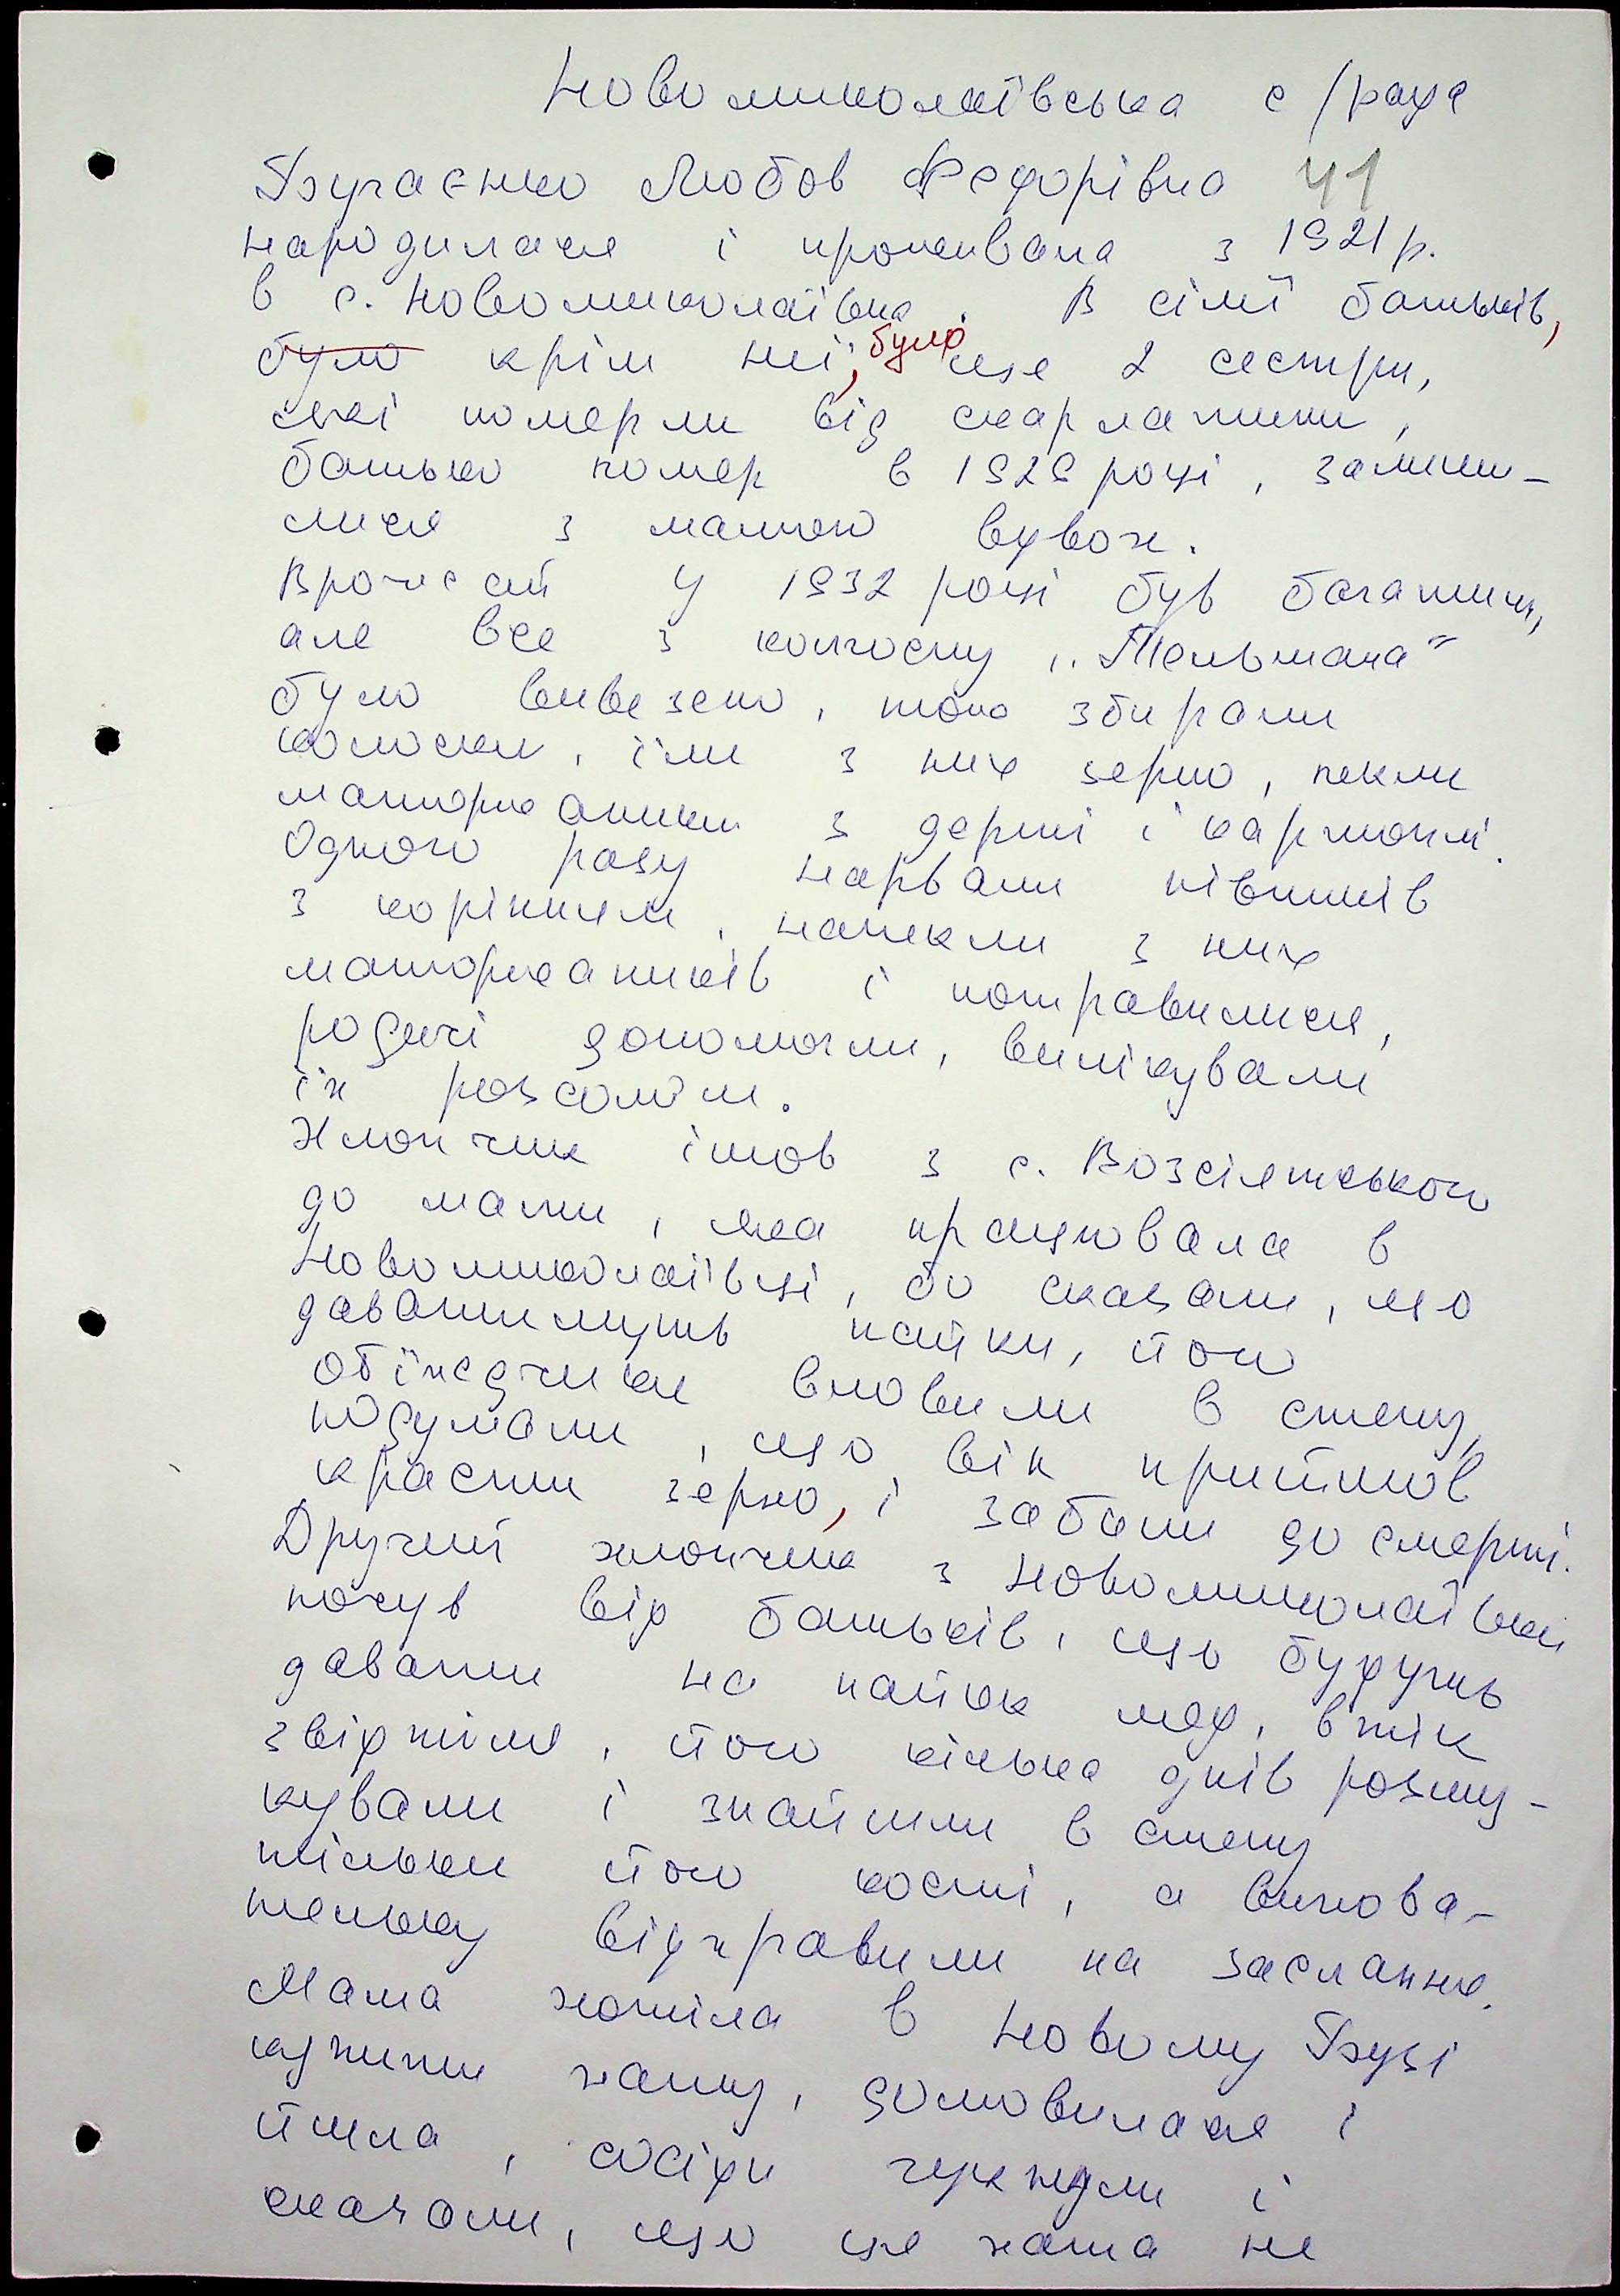 Новомиколаївська с/рада
Бугаєнко Любов Федорівна 41
народилася і проживала з 1921 р.
в с. Новомиколаївка. В сім'ї батьків,
було крім неї, було ще 2 сестри,
які померли від скарлатини,
батько помер в 1929 році, залиши-
лися з матірю вдвох.
Врожай у 1932 році був багатим,
але все з колгоспу „Тельмана"
було вивезено, тоно збирали
колоски, їли з них зерно, пекли
маторжаники з дерті і картоплі.
Одного разу нарвали півників
з корінням, напекли з них
маторжаників і потравилися,
родичі допомогли, вилікували
їх розсолом.
Хлопчик ішов з с. Возсіятського
до мати, яка працювала в
Новомиколаївці, бо сказали, що
даватимуть пайки, його
об'їждчики вловили в степу,
подумали, що він прийшов
красти зерно, і забили до смерті.
Другий хлопчик з Новомиколаївки
почув від батьків, що будуть
давати на пайок мед, втік
звідтіля, його кілька днів розшу-
кували і знайшли в степу
тільки його кості, а винова-
тельку відправили на заслання.
Мама хотіла в Новому Бузі
купити хату, домовилася і
йшла, сусіди перейняли і
сказали, що це хата не